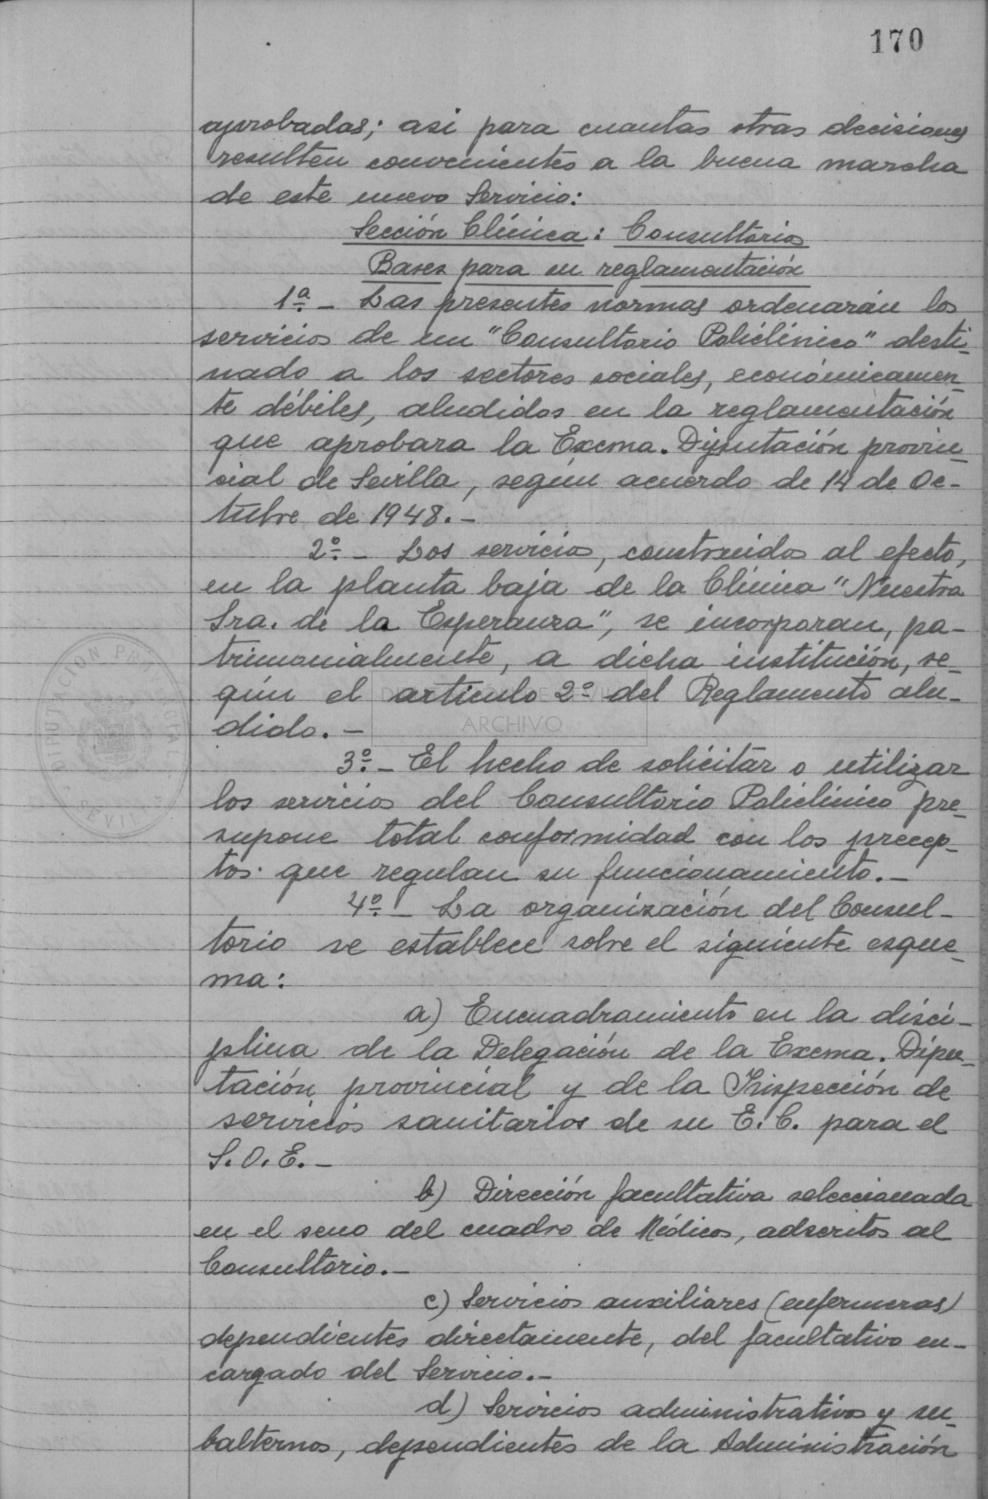 170
aprobadas; asi para cuantas otras decisiones
resulten convenientes a la buena marcha
de este nuevo Servicio:
Sección Clínica: Consultorio
Bases para su reglamentación
1ª.- Las presentes normas ordenarán los
servicios de un "Consultorio Policlínico" desti-
nado a los sectores sociales, económicamen-
te débiles, aludidos en la reglamentación
que aprobara la Excma. Diputación provin-
cial de Sevilla, según acuerdo de 14 de Oc-
tubre de 1948.-
2º.- Los servicios, construidos al efecto,
en la planta baja de la Clínica "Nuestra
Sra. de la Esperanza", se incorporan, pa-
trimonialmente, a dicha institución, se-
gún el artículo 2º del Reglamento alu-
dido.-
ARCHIVO
DIPUTACION PROVINCIAL
SEVILLA
3º.- El hecho de solicitar o utilizar
los servicios del Consultorio Policlínico pre-
supone total conformidad con los precep-
tos que regulan su funcionamiento.-
4º.- La organización del Consul-
torio se establece sobre el siguiente esque-
ma:
a) Encuadramiento en la disci-
plina de la Delegación de la Excma. Dipu-
tación provincial y de la Inspección de
servicios sanitarios de su E.C. para el
S.O.E.-
b) Dirección facultativa seleccionada
en el seno del cuadro de Médicos, adscritos al
Consultorio.-
c) Servicios auxiliares (enfermeras)
dependientes directamente, del facultativo en-
cargado del Servicio.-
d) Servicios administrativos y su-
balternos, dependientes de la Administración